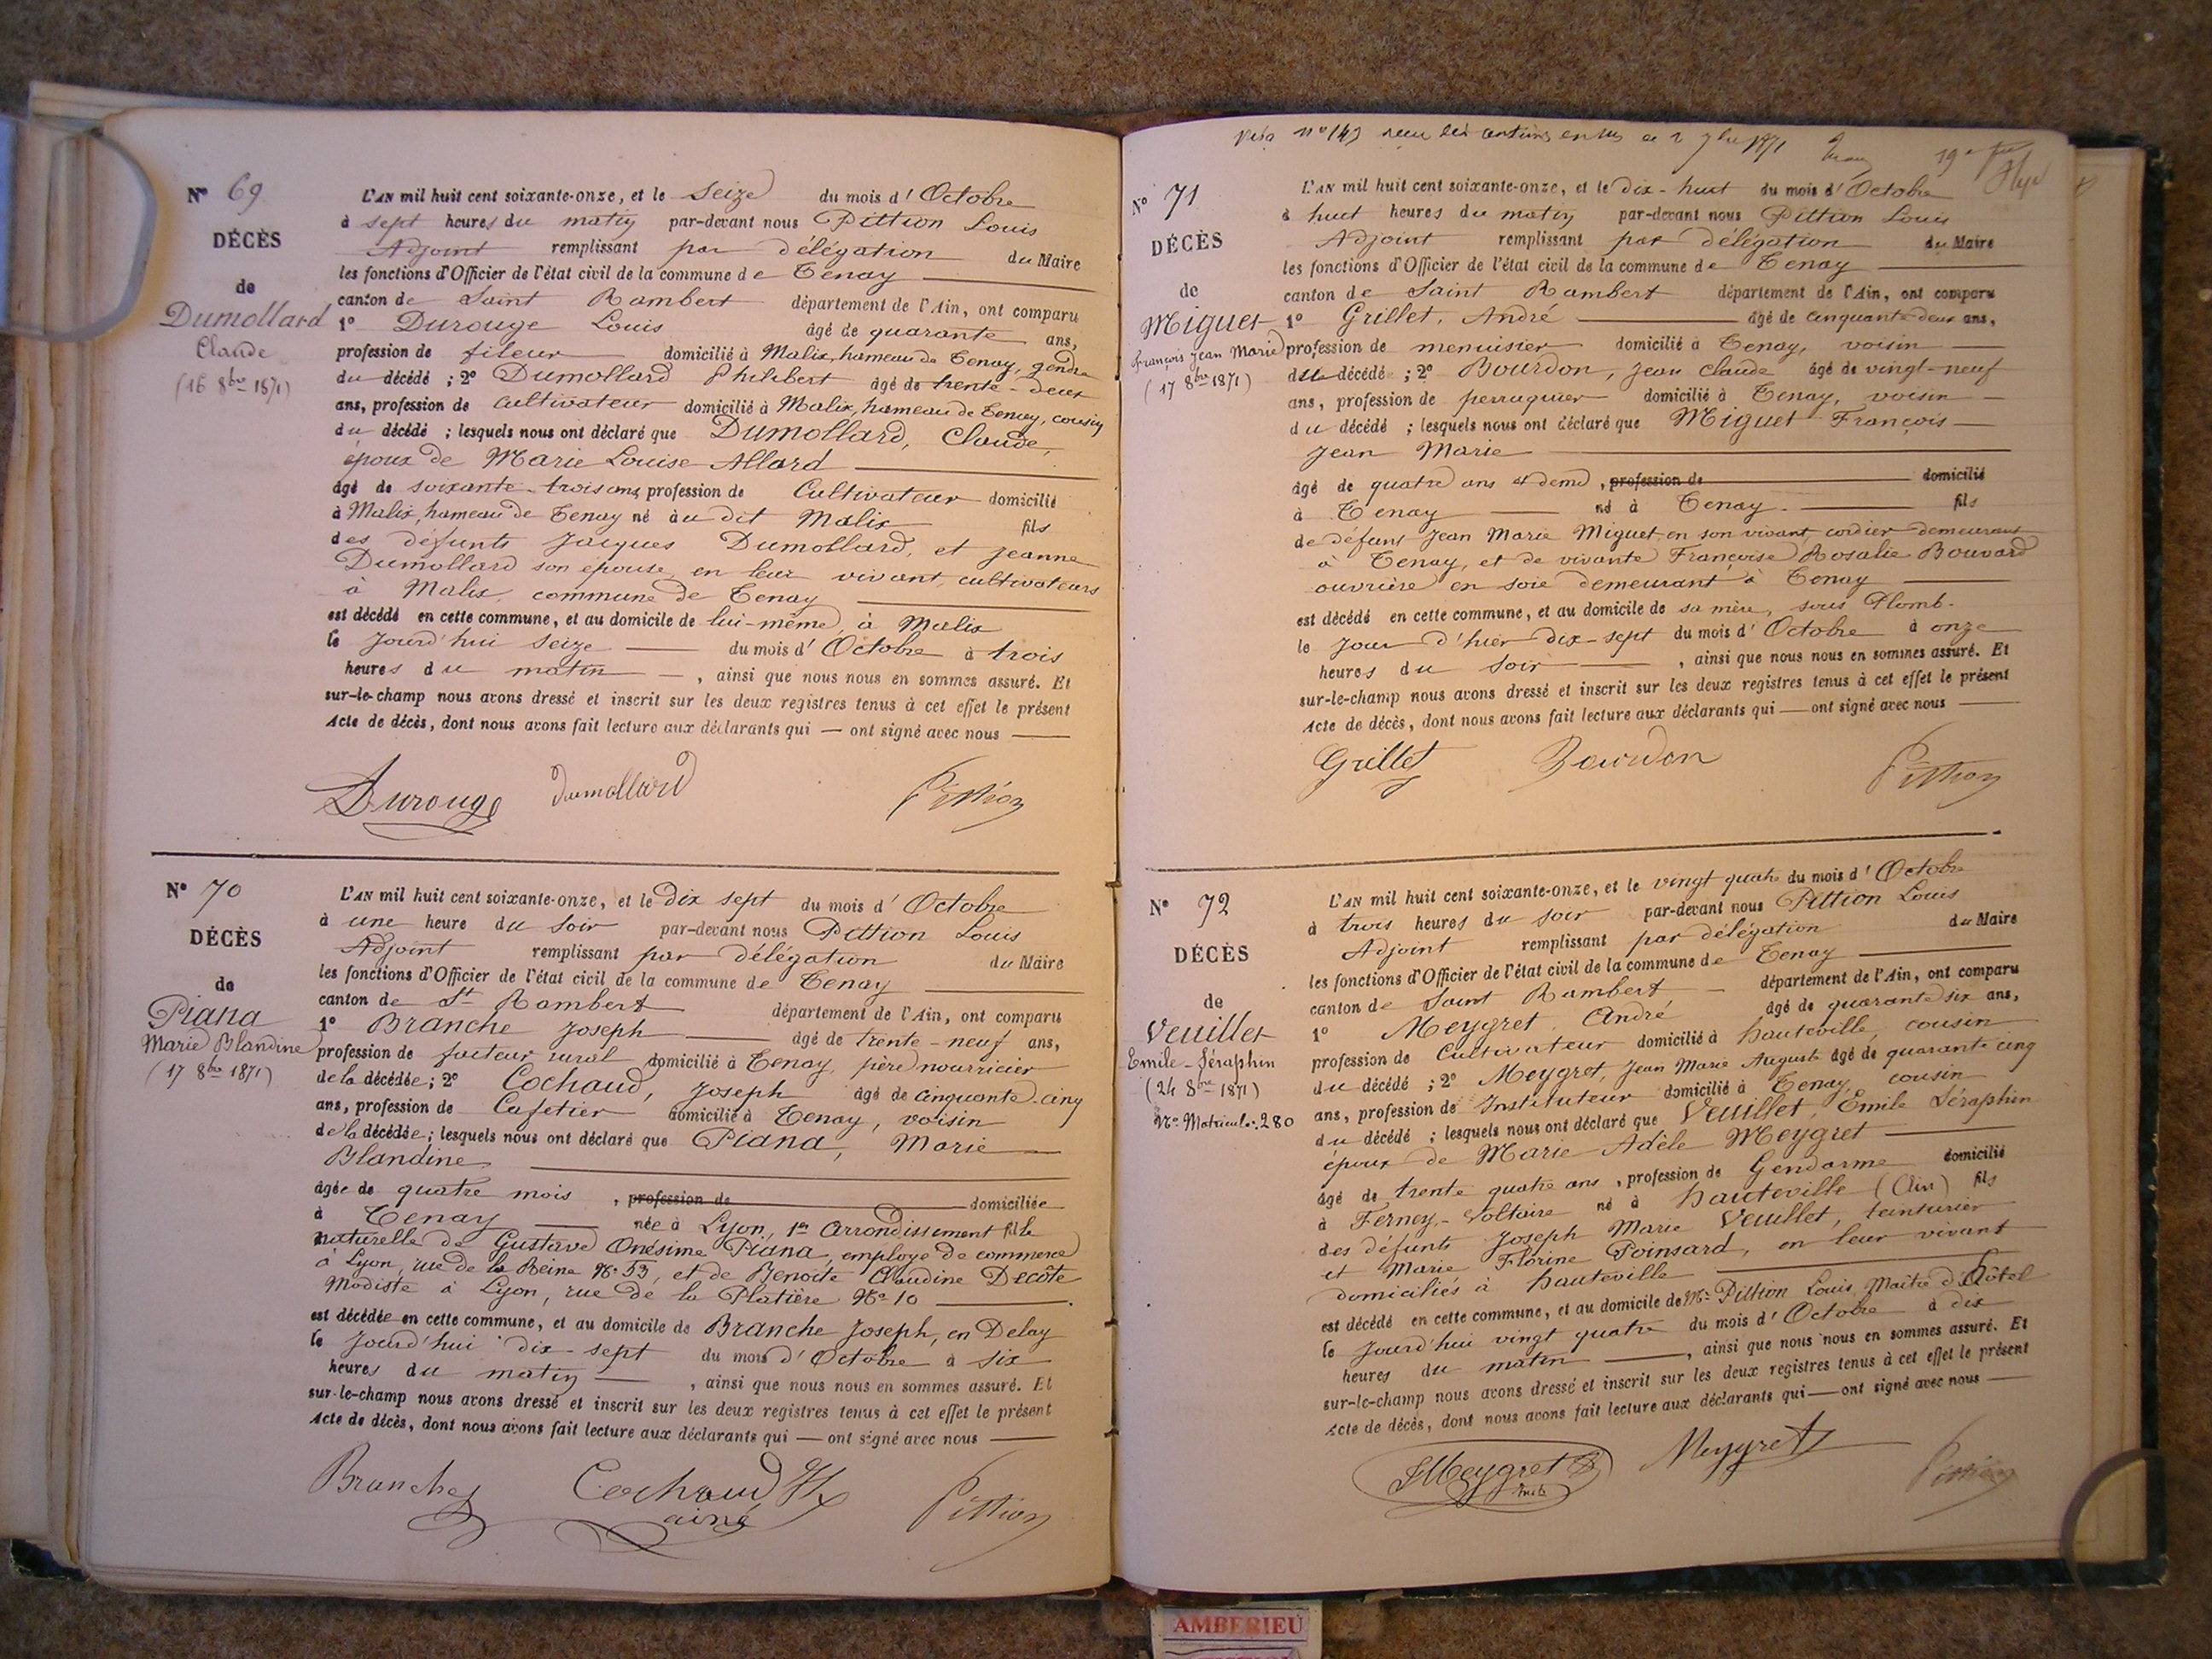 N° 69
DÉCÈS
de
Dumollard
Claude
(16 8bre 1871)
L'AN mil huit cent soixante-onze, et le Seize du mois d'Octobre
à sept heures du matin par-devant nous Pittion Louis
Adjoint remplissant par délégation du Maire
les fonctions d'Officier de l'état civil de la commune de Tenay
canton de Saint Rambert département de l'Ain, ont comparu
1° Durouge Louis âgé de quarante ans,
profession de fileur domicilié à Malix, hameau de Tenay, gendre
du décédé ; 2° Dumollard Philibert âgé de trente-deux
ans, profession de cultivateur domicilié à Malix, hameau de Tenay, cousin
du décédé ; lesquels nous ont déclaré que Dumollard, Claude,
époux de Marie Louise Allard
âgé de soixante-trois ans, profession de Cultivateur domicilié
à Malix, hameau de Tenay né au dit Malix fils
des défunts Jacques Dumollard, et Jeanne
Dumollard son épouse, en leur vivant, cultivateurs
à Malix, commune de Tenay
est décédé en cette commune, et au domicile de lui-même, à Malix
le jourd'hui seize du mois d'Octobre à trois
heures du matin, ainsi que nous nous en sommes assuré. Et
sur-le-champ nous avons dressé et inscrit sur les deux registres tenus à cet effet le présent
Acte de décès, dont nous avons fait lecture aux déclarants qui — ont signé avec nous
Durouge Dumollard Pittion
N° 70
DÉCÈS
de
Piana
Marie Blandine
(17 8bre 1871)
L'AN mil huit cent soixante-onze, et le Dix sept du mois d'Octobre
à une heure du soir par-devant nous Pittion Louis
Adjoint remplissant par délégation du Maire
les fonctions d'Officier de l'état civil de la commune de Tenay
canton de St Rambert département de l'Ain, ont comparu
1° Branche Joseph âgé de trente-neuf ans,
profession de facteur rural domicilié à Tenay, père nourricier
de la décédée ; 2° Cochaud, Joseph âgé de cinquante-cinq
ans, profession de Cafetier domicilié à Tenay, voisin
de la décédée ; lesquels nous ont déclaré que Piana, Marie
Blandine
âgée de quatre mois, profession de domiciliée
à Tenay née à Lyon, 1er Arrondissement fille
naturelle de Gustave Onésime Piana, employé de commerce
à Lyon, rue de la Reine N° 53, et de Benoîte Claudine Decôte
Modiste à Lyon, rue de la Platière N° 10
est décédée en cette commune, et au domicile de Branche Joseph, en Delay
le jourd'hui dix-sept du mois d'Octobre à six
heures du matin, ainsi que nous nous en sommes assuré. Et
sur-le-champ nous avons dressé et inscrit sur les deux registres tenus à cet effet le présent
Acte de décès, dont nous avons fait lecture aux déclarants qui — ont signé avec nous
Branche Cochaud Pittion
ainé
Visa n° 149 1871
N° 71
DÉCÈS
de
Miguet
François Jean Marie
(17 8bre 1871)
L'AN mil huit cent soixante-onze, et le dix-huit du mois d'Octobre
à huit heures du matin par-devant nous Pittion Louis
Adjoint remplissant par délégation du Maire
les fonctions d'Officier de l'état civil de la commune de Tenay
canton de Saint Rambert département de l'Ain, ont comparu
1° Grillet, André âgé de cinquante-deux ans,
profession de menuisier domicilié à Tenay, voisin
du décédé ; 2° Bourdon, Jean Claude âgé de vingt-neuf
ans, profession de perruquier domicilié à Tenay, voisin
du décédé ; lesquels nous ont déclaré que Miguet François
Jean Marie
âgé de quatre ans et demi, profession de domicilié
à Tenay né à Tenay fils
de défunt Jean Marie Miguet, en son vivant, cordier demeurant
à Tenay, et de vivante Françoise Rosalie Bouvard
ouvrière en soie demeurant à Tenay
est décédé en cette commune, et au domicile de sa mère, sous Plomb.
le jour d'hier dix-sept du mois d'Octobre à onze
heures du soir, ainsi que nous nous en sommes assuré. Et
sur-le-champ nous avons dressé et inscrit sur les deux registres tenus à cet effet le présent
Acte de décès, dont nous avons fait lecture aux déclarants qui — ont signé avec nous
Grillet Bourdon Pittion
N° 72
DÉCÈS
de
Veuillet
Emile-Séraphin
(24 8bre 1871)
N° Matricule: 280
L'AN mil huit cent soixante-onze, et le vingt quatre du mois d'Octobre
à trois heures du soir par-devant nous Pittion Louis
Adjoint remplissant par délégation du Maire
les fonctions d'Officier de l'état civil de la commune de Tenay
canton de Saint Rambert département de l'Ain, ont comparu
1° Meygret André, âgé de quarante six ans,
profession de Cultivateur domicilié à hauteville, cousin
du décédé ; 2° Meygret, Jean Marie Auguste âgé de quarante cinq
ans, profession de Instituteur domicilié à Tenay, cousin
du décédé ; lesquels nous ont déclaré que Veuillet, Emile Séraphin
époux de Marie Adèle Meygret
âgé de trente quatre ans, profession de Gendarme domicilié
à Ferney-Voltaire né à hauteville (Ain) fils
des défunts Joseph Marie Veuillet, teinturier
et Marie Florine Poinsard, en leur vivant
domiciliés à hauteville
est décédé en cette commune, et au domicile de Mr Pittion Louis, Maître d'hôtel
le jourd'hui vingt quatre du mois d'Octobre à dix
heures du matin, ainsi que nous nous en sommes assuré. Et
sur-le-champ nous avons dressé et inscrit sur les deux registres tenus à cet effet le présent
Acte de décès, dont nous avons fait lecture aux déclarants qui — ont signé avec nous
Meygret Meygret Pittion
AMBERIEU